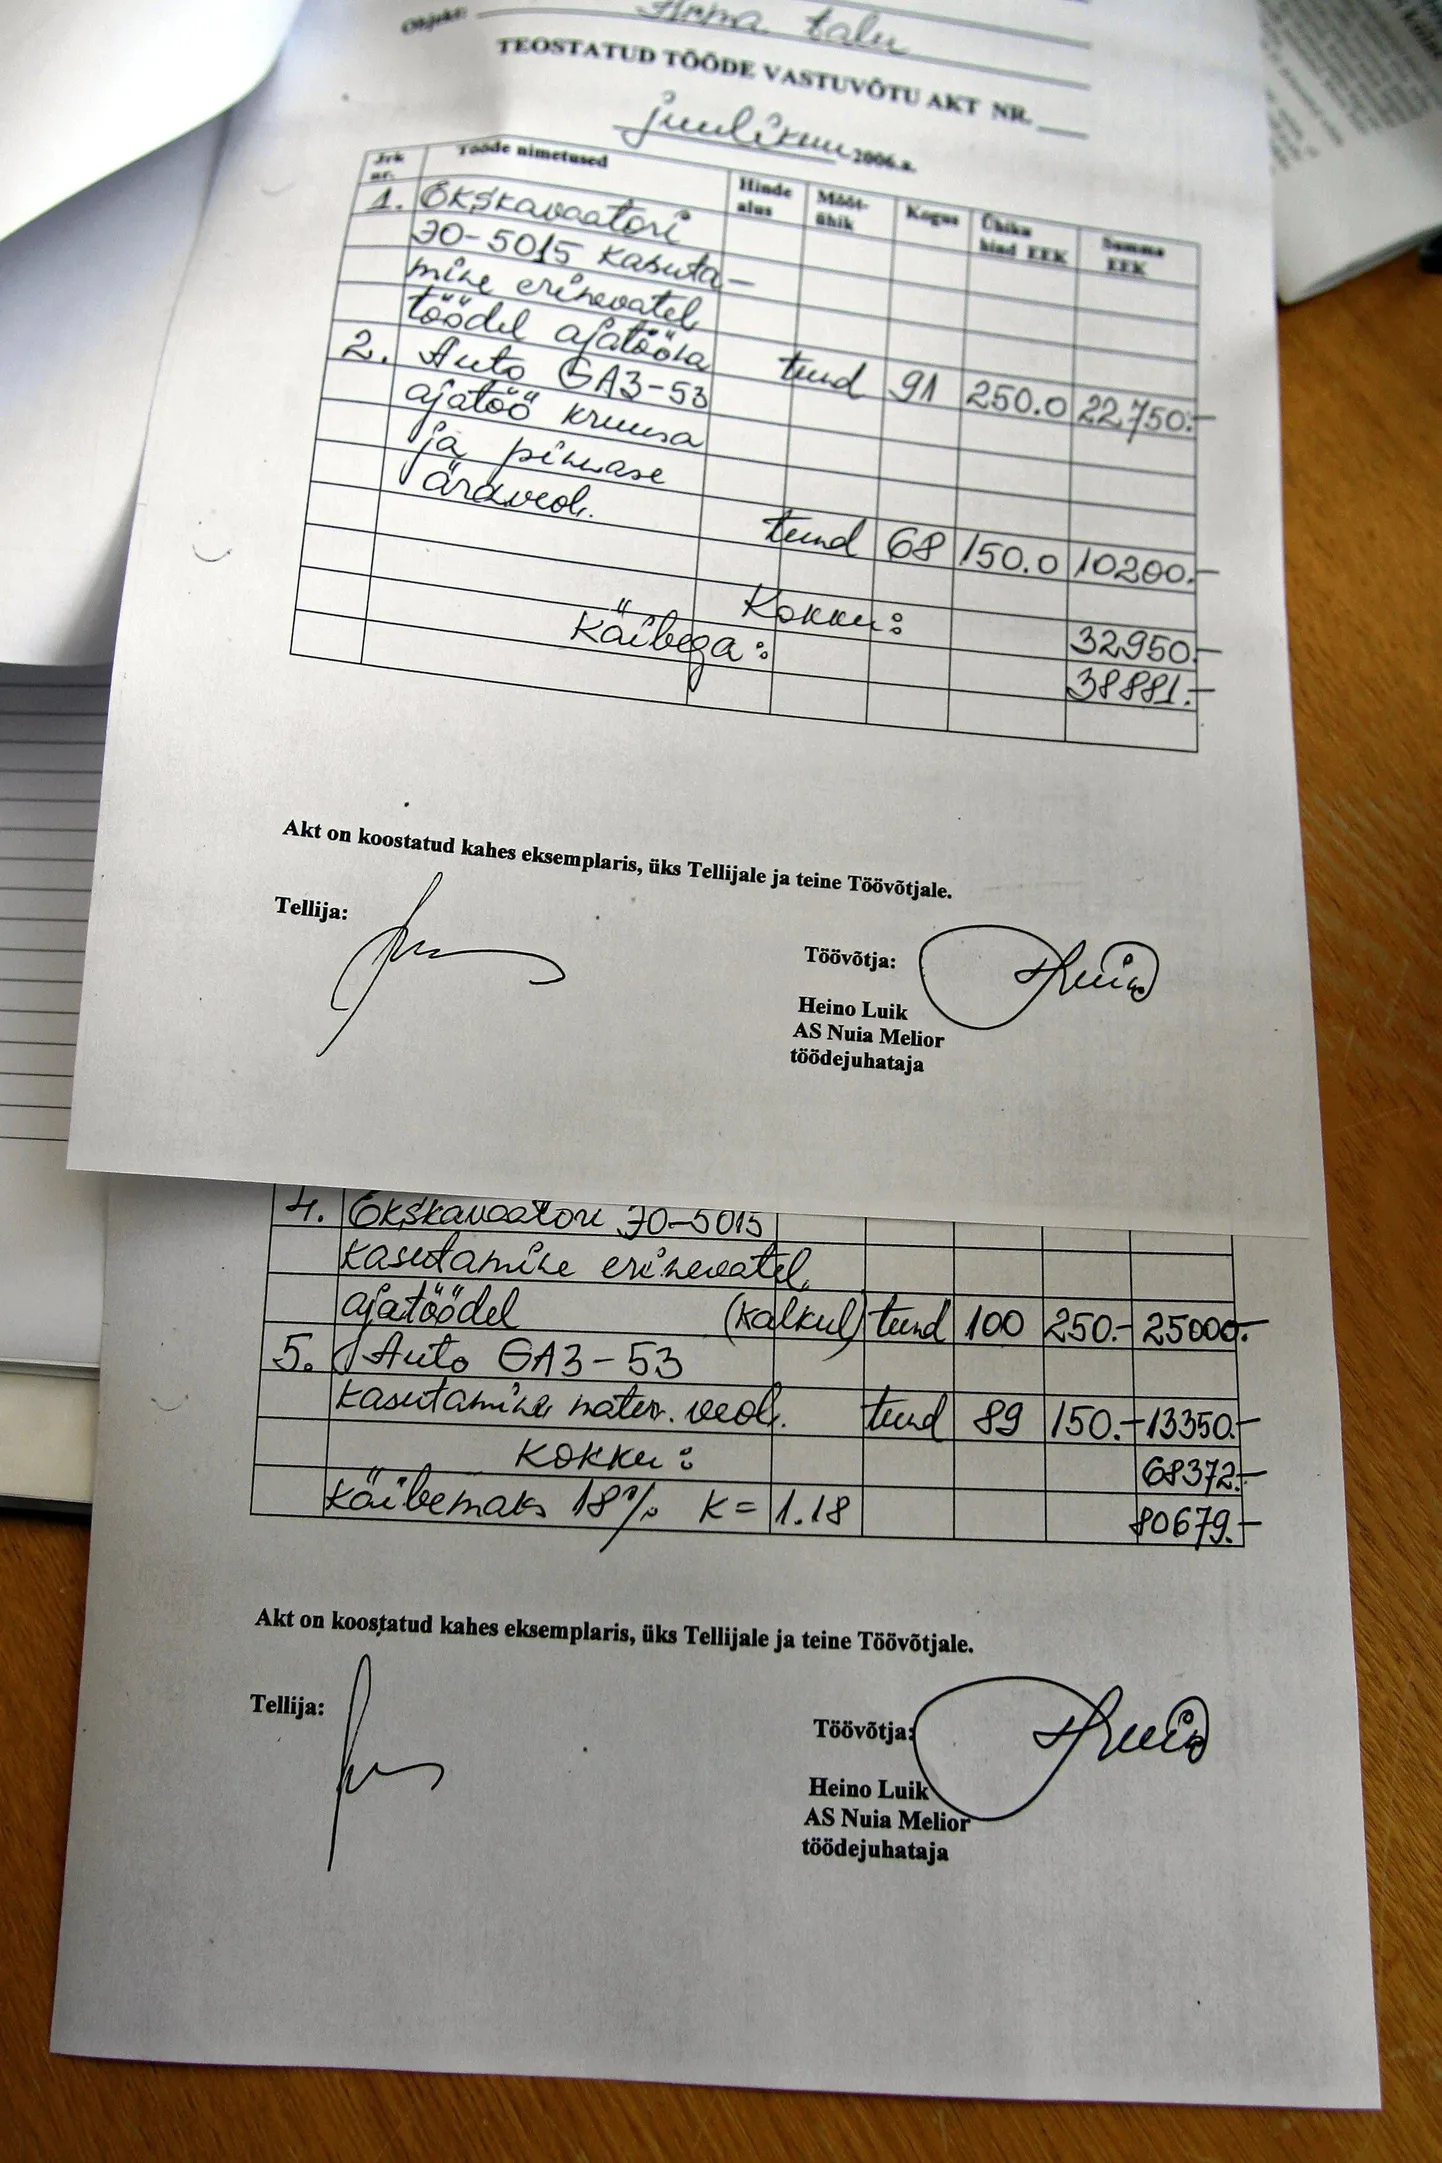 Objekt: talu
TEOSTATUD TÖÖDE VASTUVÕTU AKT NR.
juulikuu 2006.a.
Jrk nr. Tööde nimetused Hinde alus Mõõt-ühik Kogus Ühiku hind EEK Summa EEK
1. Ekskavaatori
ЭО-5015 kasuta-
mine erinevatel
töödel ajatööna tund 91 250.0 22.750.-
2. Auto GA3-53
ajatöö kruusa
ja pinnase
äraveol. tund 68 150.0 10200.-
Kokku: 32950.-
Käibega: 38881.-
Akt on koostatud kahes eksemplaris, üks Tellijale ja teine Töövõtjale.
Tellija:
Töövõtja:
Heino Luik
AS Nuia Melior
töödejuhataja
4. Ekskavaatori ЭО-5015
kasutamine erinevatel
ajatöödel (kalkul) tund 100 250.- 25000.-
5. Auto GA3-53
kasutamine mater. veol. tund 89 150.- 13350.-
Kokku: 68372.-
Käibemaks 18% K= 1.18 80679.-
Akt on koostatud kahes eksemplaris, üks Tellijale ja teine Töövõtjale.
Tellija:
Töövõtja:
Heino Luik
AS Nuia Melior
töödejuhataja